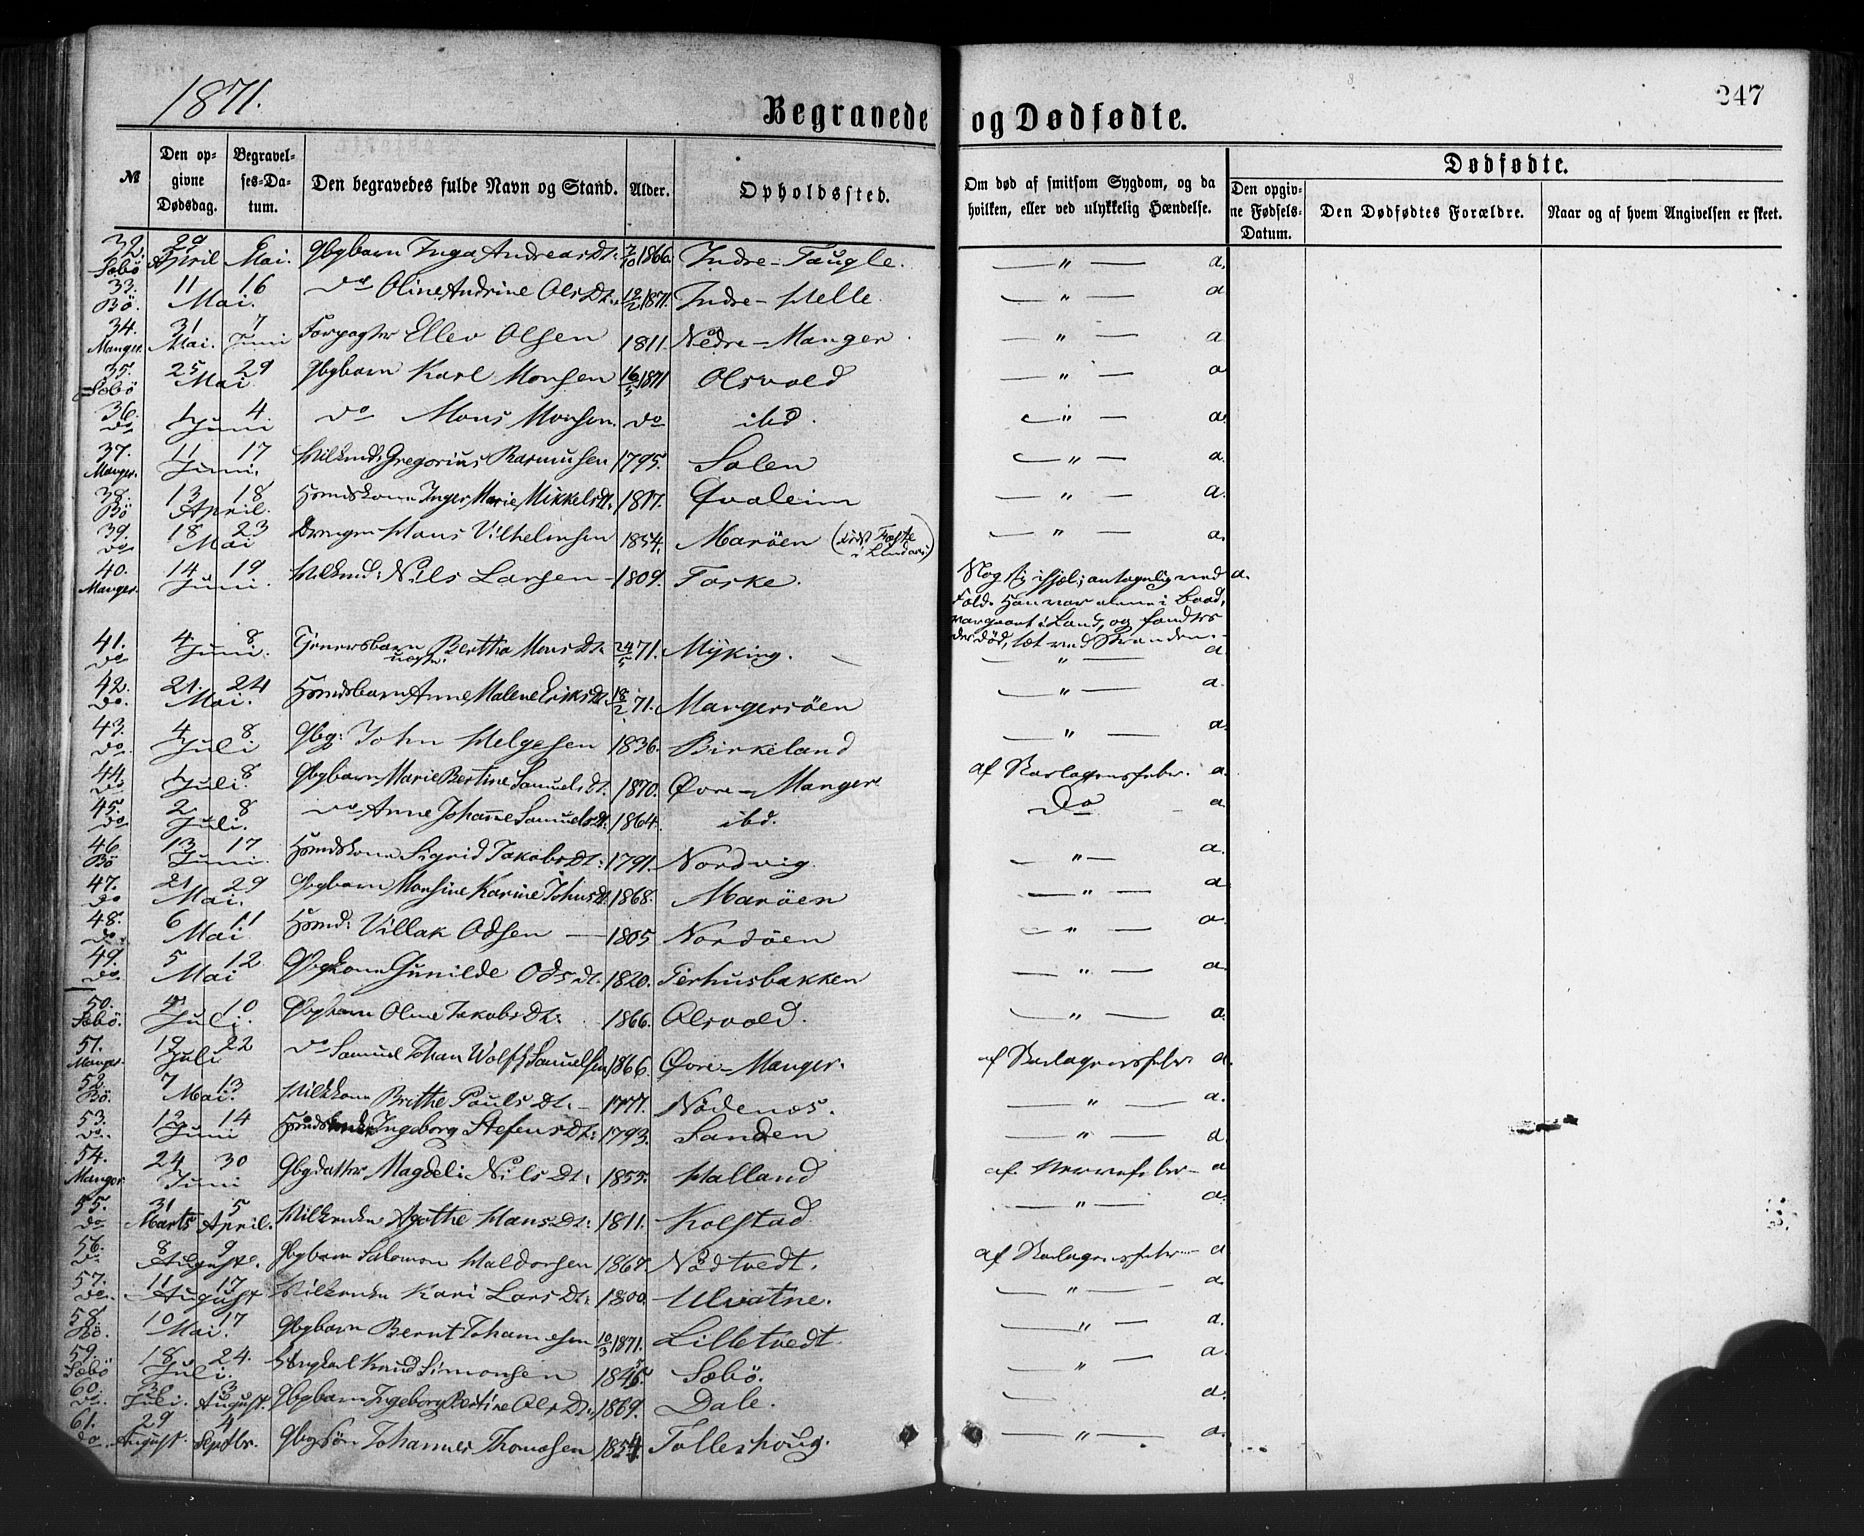 1871.
Begravede og Dødfødte.
247
№
Den opgivne Dødsdag.
Begravelses-Datum.
Den begravedes fulde Navn og Stand.
Alder.
Opholdssted.
Om død af smitsom Sygdom, og da hvilken, eller ved ulykkelig Hændelse.
Dødfødte.
Den opgivne Fødsels-Datum.
Den Dødfødtes Forældre.
Naar og af hvem Angivelsen er skeet.
32. Sæbö 29 April Mai. Gbgbarn Inga Andreasdt. 7/10 1866. Indre-Taugle. — " — a.
33. Bö. 11 16 Mai. do Oline Andrine Olsdt. 1871. Indre-Helle. — " — a
34. Manger. 31 Mai. 7 Juni Forpagter Ellev Olsen 1811. Nedre-Manger. — " — a
35. Sæbö 25 29 Mai Gbgbarn Karl Monsen 16/5 1871 Alsvold — " — a
36. do 1 4. Juni do Mons Monsen. do ibd. — " — a.
37. Manger. 11 17 Juni. Vilkmd: Gregorius Rasmusen 1795. Solen — " — a.
38. Bö 13 18 April. Hsmdskone Inger Marie Mikkelsdt. 1817. Qvaleim — " — a.
39. do 18 23 Mai Drengen Hans Vilhelmsen 1854. Maröen (födt Foste i Lindaas) — " — a.
40. Manger. 14 19 Juni. Vilkmd: Nils Larsen — 1809. Toske. Slog sig ihjel; antagelig ved Fald. Han var alene i Baad, var gaaet i Land, og fandtes der död, tæt ved Stranden. — a.
41. do 4 8 Juni. Tjenersbarn Bertha Monsdt. 24/5 71. Myking. — " — a
42. do. 21. 24 Mai. Hsmdsbarn Anne Malene Eriksdt. 18/2 71. Mangersöen — " — a.
43. do. 4 8 Juli Gbg: John Helgesen 1836. Birkeland — " — a
44. do 1 8 Juli. Gbgbarn Marie Bertine Samuelsdt. 1870. Øvre-Manger. af Skarlagensfeber. a.
45. do 2 8 Juli. do Anne Johanne Samuelsdt. 1864. ibd. Do — a
46. Bö 13 17 Juni. Hsmdskone Sigrid Jakobsdt: 1791. Nordvig. — " — a.
47. do 21 29 Mai. Gbgbarn Monsine Karine Johnsdt. 1868. Maröen — " — a
48. do 6 11 Mai Hsmd: Villak Odsen — 1805 Nordöen — " — a.
49. do 5 12. Mai Gbgkone Gunilde Odsdt. 1820. Terhusbakken — " — a.
50. Sæbö. 10 Juli. Gbgbarn Oline Jakobsdt: 1866. Alsvold. — " — a.
51. Manger. 19 22 Juli do Samuel Johan Wolff Samuelsen 1866. Øvre-Manger. af Skarlagensfeber a.
52. Bö. 7 13 Mai. Vilkkone Brithe Paulsdt: — 1777. Nödenes. — " — a.
53. do. 12 14 Juni Ingeborg Stefensdt: 1793. Sanden — " — a.
54. Manger 24 30 Juni Gbgdatter Magdeli Nilsdt. 1855. Halland af Nervefeber — a
55. do 31 Marts 5 April. Vilkenke Agothe Hansdt: 1811. Kolstad — " — a.
56. do 8 9 August. Gbgbarn Salomon Haldorsen 1867. Nödtvedt. af Skarlagensfeber — a
57. do. 11 17 August Vilkenke Kari Larsdt: 1800. Ulvatne. — " — a.
58. Bö. 10 17 Mai. Gbgbarn Bernt Johannesen 10/3 1871. Lilletvedt — " — a.
59. Sæbö 18 24. Juli. Ungkarl Knud Simonsen 1845. Sæbö. — " — a.
60. do. 30 Juli. 3 August. Gbgbarn Ingeborg Bertine Olsdt. 1869. Dale. — a.
61. do 29 August. 4 Septbr. Gbgsön Johannes Thomasen 1854. Tolleshoug. — " — a.